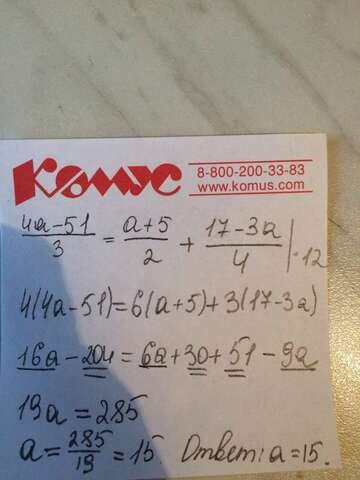 Комус
8-800-200-33-83
www.komus.com
(4a-51)/3 = (a+5)/2 + (17-3a)/4 |·12
4(4a-51)=6(a+5)+3(17-3a)
16a-204=6a+30+51-9a
19a=285
a=285/19=15. Ответ: a=15.